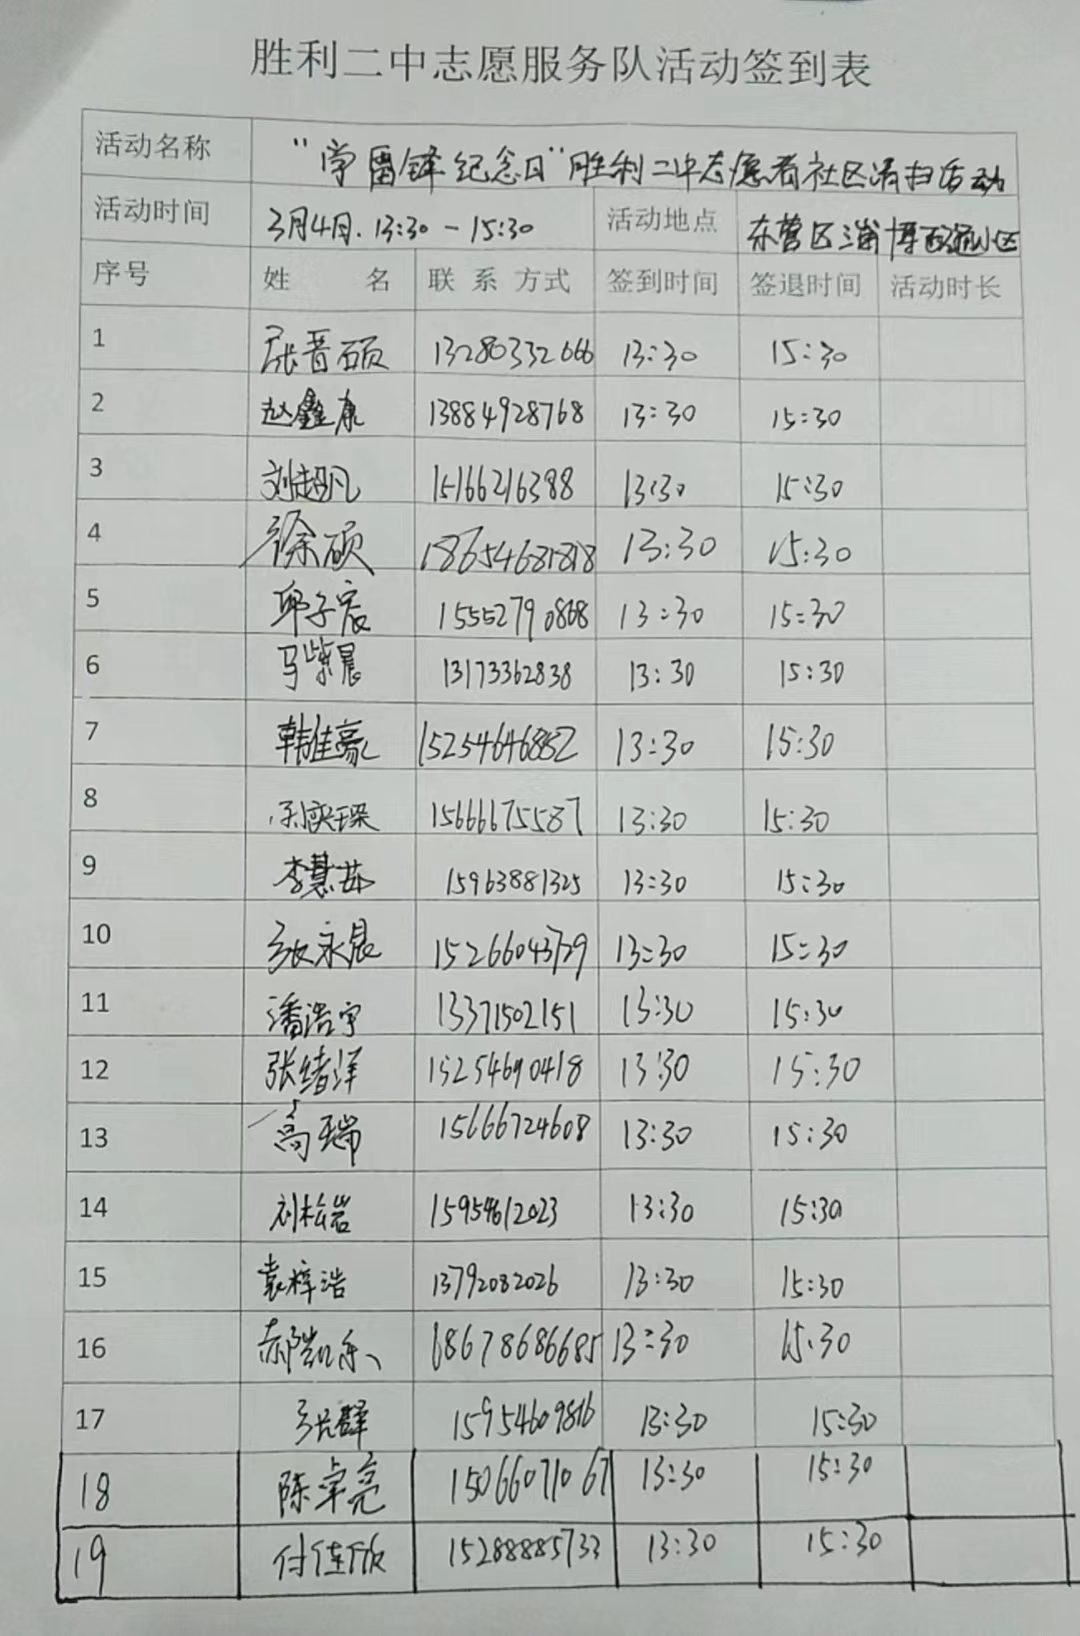 胜利二中志愿服务队活动签到表
活动名称 "学雷锋纪念日"胜利二中志愿者社区清扫活动
活动时间 3月4日. 13:30 - 15:30 活动地点 东营区淄博西通小区
序号 姓 名 联 系 方式 签到时间 签退时间 活动时长
1 张晋硕 13280332666 13:30 15:30
2 赵鑫康 13884928768 13:30 15:30
3 刘超凡 15166216388 13:30 15:30
4 徐硕 18654681818 13:30 15:30
5 邱子宸 15552790868 13:30 15:30
6 马紫晨 13173362838 13:30 15:30
7 韩佳豪 15254646852 13:30 15:30
8 15666675587 13:30 15:30
9 李慧茹 15963881325 13:30 15:30
10 张永晟 15266043729 13:30 15:30
11 潘浩宇 13371502151 13:30 15:30
12 张绪洋 15254690418 13:30 15:30
13 高瑞 15666724608 13:30 15:30
14 刘松岩 15954612023 13:30 15:30
15 袁梓浩 13792082026 13:30 15:30
16 郝凯乐 68678686685 13:30 15:30
17 张群 15954609816 13:30 15:30
18 陈卓亮 15066071067 13:30 15:30
19 付佳欣 15288885733 13:30 15:30